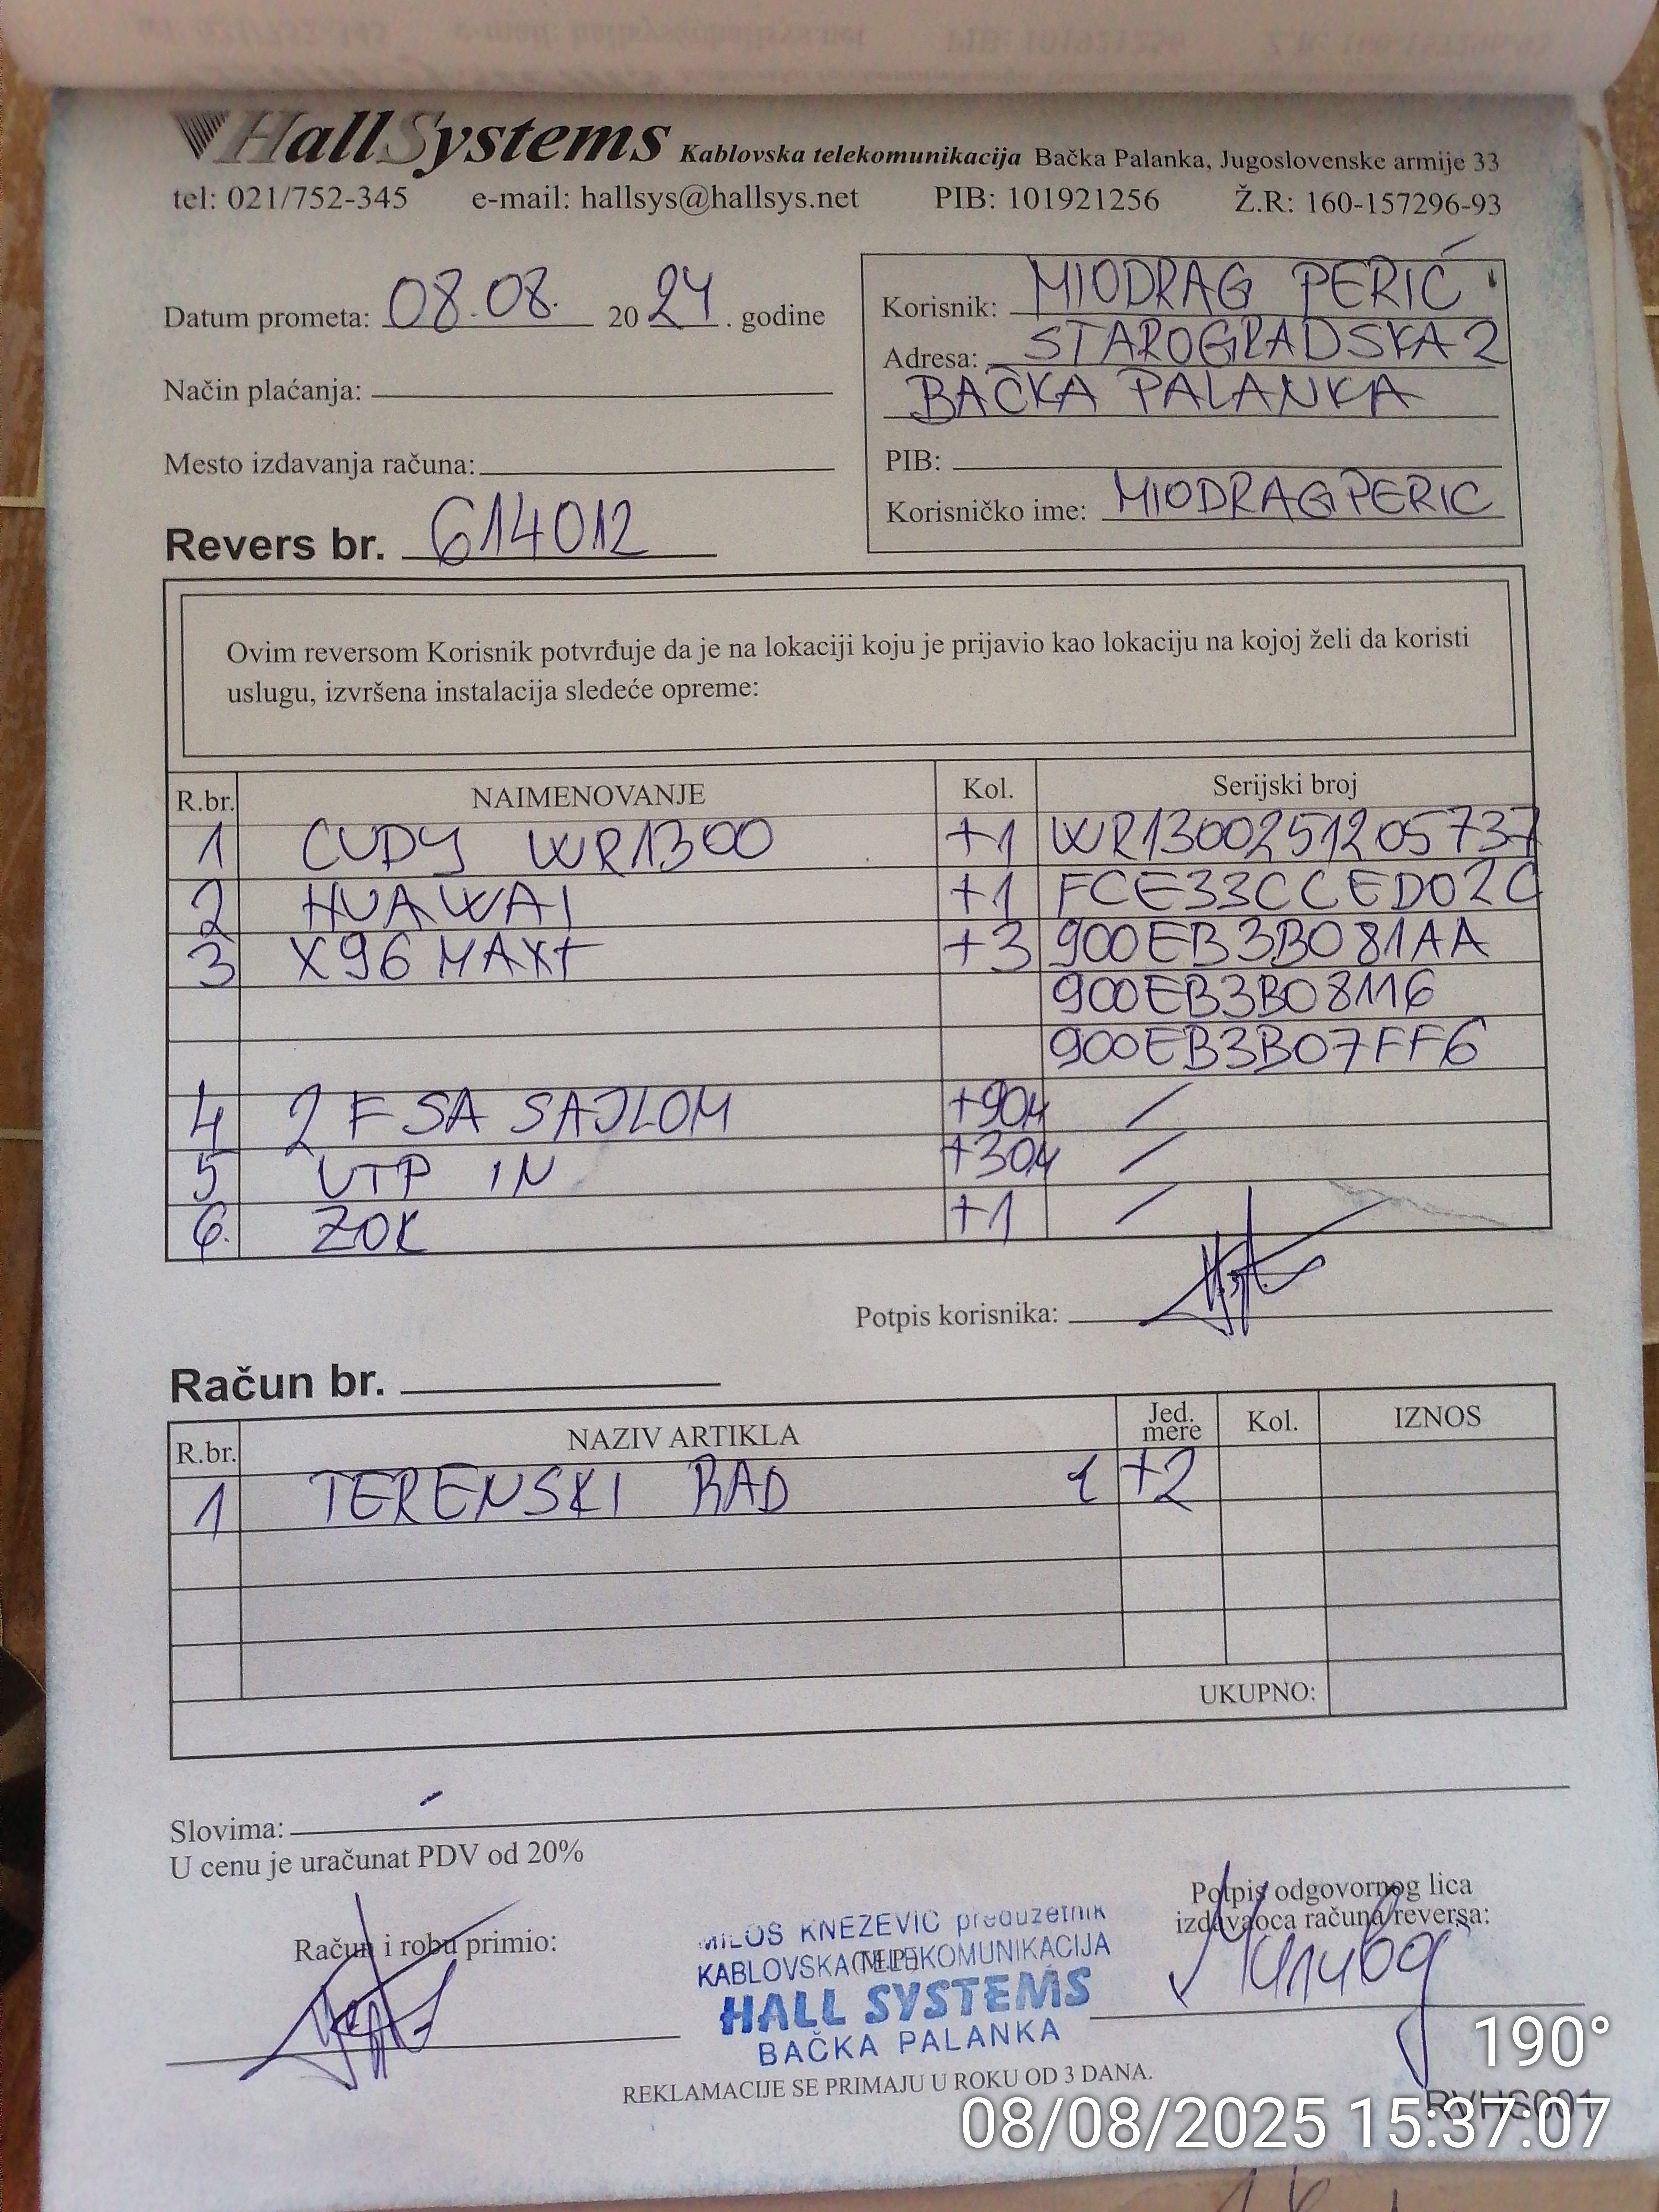 HallSystems Kablovska telekomunikacija Bačka Palanka, Jugoslovenske armije 33
tel: 021/752-345 e-mail: hallsys@hallsys.net PIB: 101921256 Ž.R: 160-157296-93
Datum prometa: 08.08. 2024. godine
Način plaćanja:
Mesto izdavanja računa:
Revers br. 614012
Korisnik: MIODRAG PERIĆ
Adresa: STAROGRADSKA 2
BAČKA PALANKA
PIB:
Korisničko ime: MIODRAGPERIC
Ovim reversom Korisnik potvrđuje da je na lokaciji koju je prijavio kao lokaciju na kojoj želi da koristi
uslugu, izvršena instalacija sledeće opreme:
R.br. NAIMENOVANJE Kol. Serijski broj
1 CUDY WR1300 +1 WR1300251205737
2 HUAWAI +1 FCE33CCED02C
3 X96 MAX+ +3 900EB3B081AA
900EB3B08116
900EB3B07FF6
4 2 F SA SAJLOM +90M /
5 UTP IN +30M /
6. ZOK +1 /
Potpis korisnika:
Račun br.
R.br. NAZIV ARTIKLA Jed. mere Kol. IZNOS
1 TERENSKI RAD +2
UKUPNO:
Slovima: -
U cenu je uračunat PDV od 20%
Račun i robu primio:
MILOŠ KNEŽEVIĆ preduzetnik
KABLOVSKA TELEKOMUNIKACIJA
HALL SYSTEMS
BAČKA PALANKA
Potpis odgovornog lica
izdavaoca računa/reversa:
REKLAMACIJE SE PRIMAJU U ROKU OD 3 DANA.
RVHS001
190°
08/08/2025 15:37:07